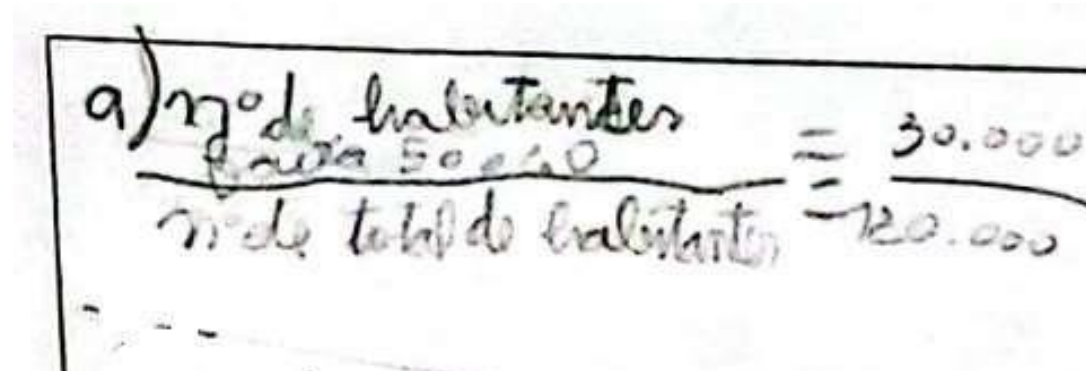 a) nº de habitantes
faixa 50 e 60 = 30.000
nº de total de habitantes 120.000